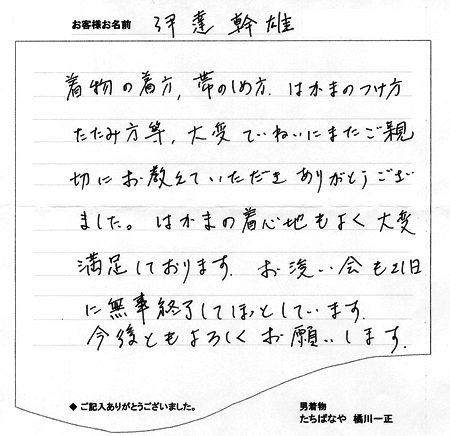 お客様お名前 伊達幹雄
着物の着方,帯のしめ方.はかまのつけ方
たたみ方等,大変ていねいにまたご親
切にお教えていただきありがとうござい
ました。はかまの着心地もよく大変
満足しております.お浚い会も21日
に無事終了してほっとしています.
今後ともよろしくお願いします.
◆ご記入ありがとうございました。
男着物
たちばなや 橘川一正